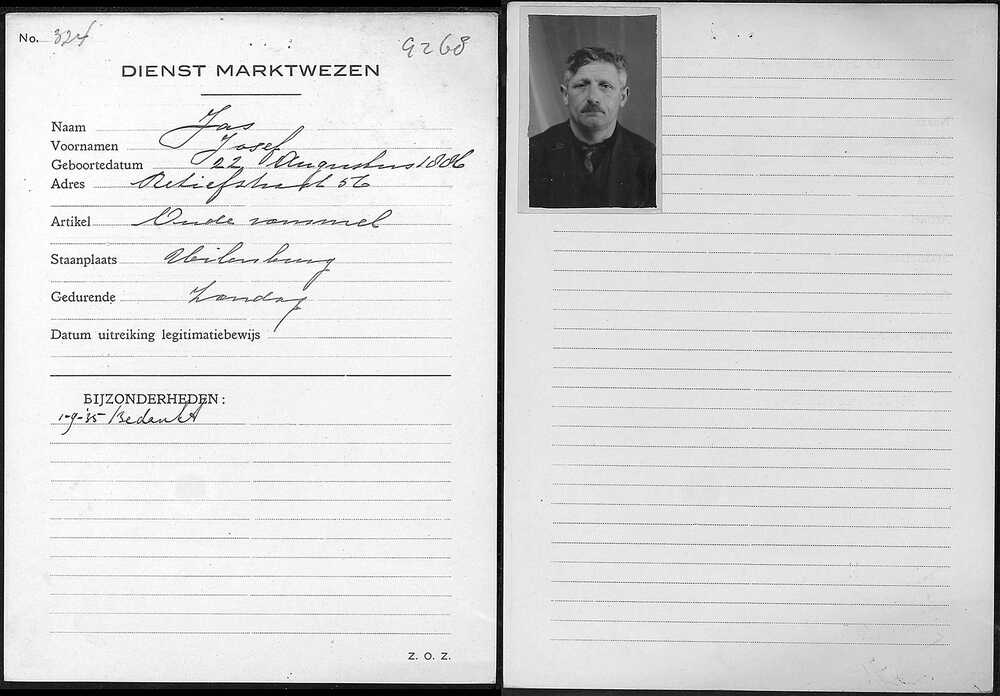 No. 324
9268
DIENST MARKTWEZEN
Naam Jas
Voornamen Josef
Geboortedatum 22 Augustus 1886
Adres Retiefstraat 56
Artikel Oude rommel
Staanplaats Uilenburg
Gedurende Zondag
Datum uitreiking legitimatiebewijs
BIJZONDERHEDEN:
1-9-'35 Bedankt
Z. O. Z.